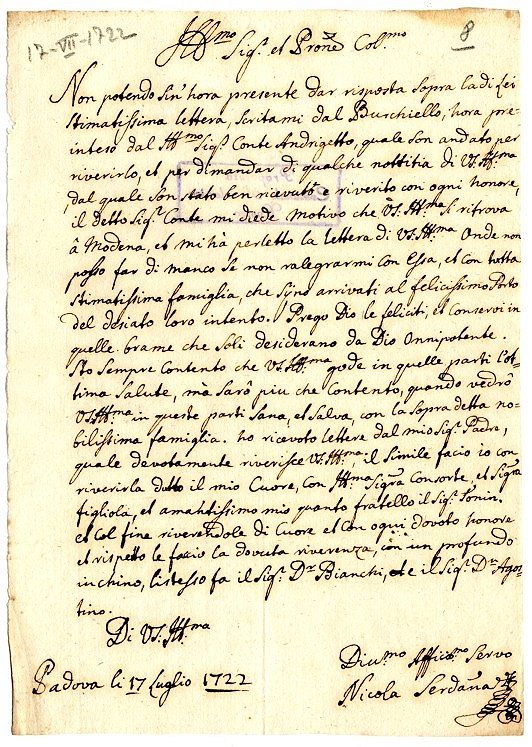 17-VII-1722
8
Ill.mo Sig.r et Prone Col.mo
Non potendo sin'hora presente dar risposta sopra la di lei
stimatissima lettera, scritami dal Buschiello, hora pre-
inteso dal Ill.mo Sig.r Conte Andrigetto, quale son andato per
riverirlo, et per dimandar di qualche nottitia di VS. Ill.ma
dal quale son stato ben ricevuto e riverito con ogni honore,
il detto Sig.r Conte mi diede motivo che VS. Ill.ma si ritrova
â Modena, et mi hà perletto la lettera di VS. Ill.ma Onde non
posso far di manco se non ralegrarmi con Essa, et con tutta
stimatissima famiglia, che sijno arrivati al felicissimo Porto
del desiato loro intento. Prego Dio le feliciti, et conservi in
quelle brame che soli desiderano da Dio Onnipotente.
Sto sempre Contento che VS. Ill.ma gode in quelle parti l'ot-
tima salute, mà sarô piu che contento, quando vedrô
VS. Ill.ma in queste parti sana, et salva, con la sopra detta no-
bilissima famiglia. ho ricevoto lettere dal mio Sig.r Padre,
quale devotamente riverisce VS. Ill.ma, il simile facio io con
riverirla dutto il mio Cuore, con Ill.ma Sig.ra Consorte, et Sig.ra
figliola, et amantissimo mio quanto fratello il Sig.r Tonin.
et Col fine riverendole di Cuore et con ogni dovoto honore
et rispetto le facio la dovuta riverenza, con un profondo
inchino, l'istesso fa il Sig.r D.r Bianchi, e il Sig.r D.r Agos-
tino.
Di VS. Ill.ma
Padova li 17 Luglio 1722
Diu.mo Affice.mo Servo
Nicola Serdana